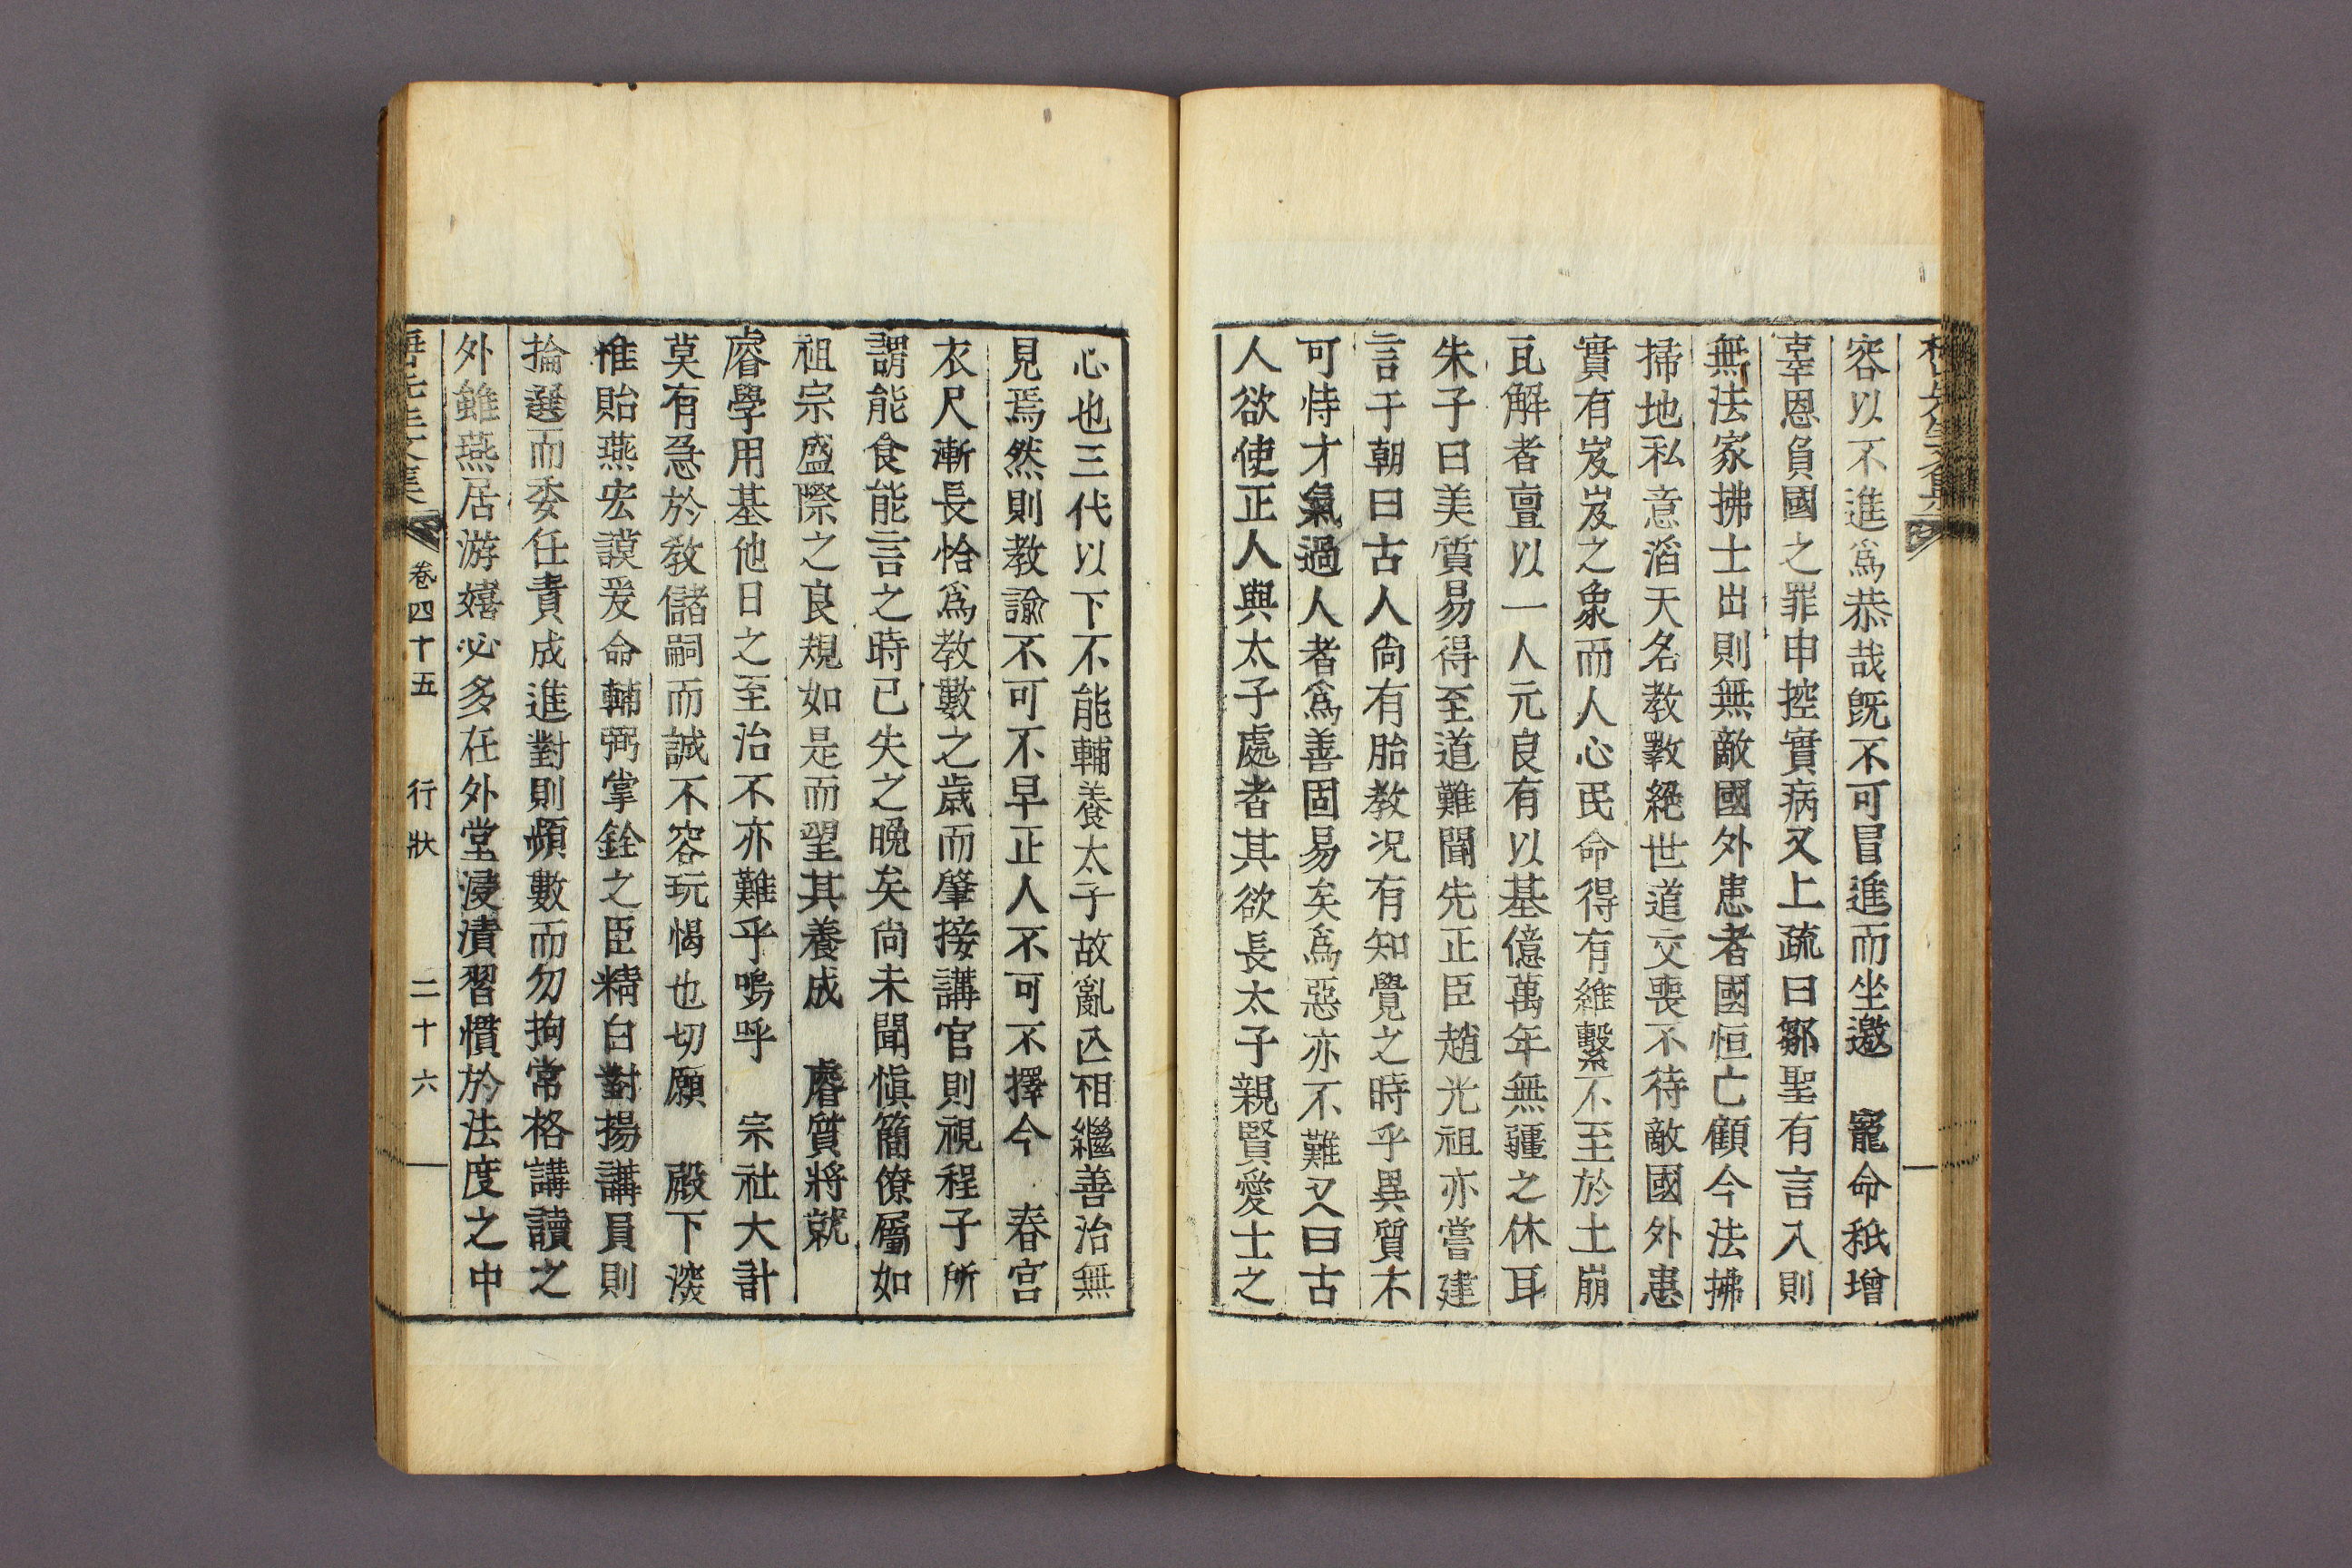 容以不進爲恭哉旣不可冒進而坐邀　寵命秪增
辜恩負國之罪申控實病又上疏曰鄒聖有言入則
無法家拂士出則無敵國外患者國恒亡顧今法拂
掃地私意滔天名教斁絕世道交喪不待敵國外患
實有岌岌之象而人心民命得有維繫不至於土崩
瓦解者亶以一人元良有以基億萬年無疆之休耳
朱子曰美質易得至道難聞先正臣趙光祖亦嘗建
言于朝曰古人尙有胎教况有知覺之時乎異質不
可恃才氣過人者爲善固易矣爲惡亦不難又曰古
人欲使正人與太子處者其欲長太子親賢愛士之
心也三代以下不能輔養太子故亂亾相繼善治無
見焉然則教諭不可不早正人不可不擇今　春宮
衣尺漸長恰爲教數之歲而肇接講官則視程子所
謂能食能言之時已失之晩矣尙未聞愼簡僚屬如
祖宗盛際之良規如是而望其養成　睿質將就
睿學用基他日之至治不亦難乎嗚呼　宗社大計
莫有急於教儲嗣而誠不容玩愒也切願　殿下滾
惟貽燕宏謨爰命輔弼掌銓之臣精白對揚講員則
掄選而委任責成進對則頻數而勿拘常格講讀之
外雖燕居游嬉必多在外堂浸漬習慣於法度之中
先生文集　卷四十五　行狀　二十六